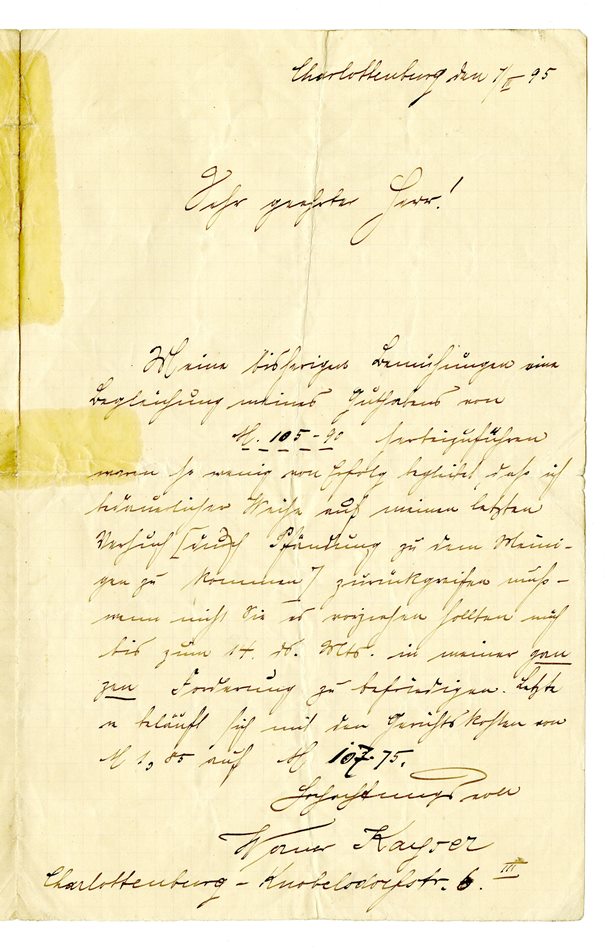 Charlottenburg den 7/II 95
Sehr geehrter Herr!
Meine bisherigen Bemühungen eine
Begleichung meines Guthabens von
M. 105-90 herbeizuführen
waren so wenig von Erfolg begleitet daß ich
bedauerlicher Weise auf meinen letzten
Versuch [durch Pfändung zu dem Meini-
gen zu kommen] zurückgreifen muß-
wenn nicht Sie es vorziehen sollten mich
bis zum 14. ds. Mts. in meiner gan
zen Forderung zu befriedigen. Letzte
re beläuft sich mit den Gerichtskosten von
M 1,85 auf M 107.75.
Hochachtungsvoll
Werner Kayser
Charlottenburg - Knobelsdorfstr. 6. III